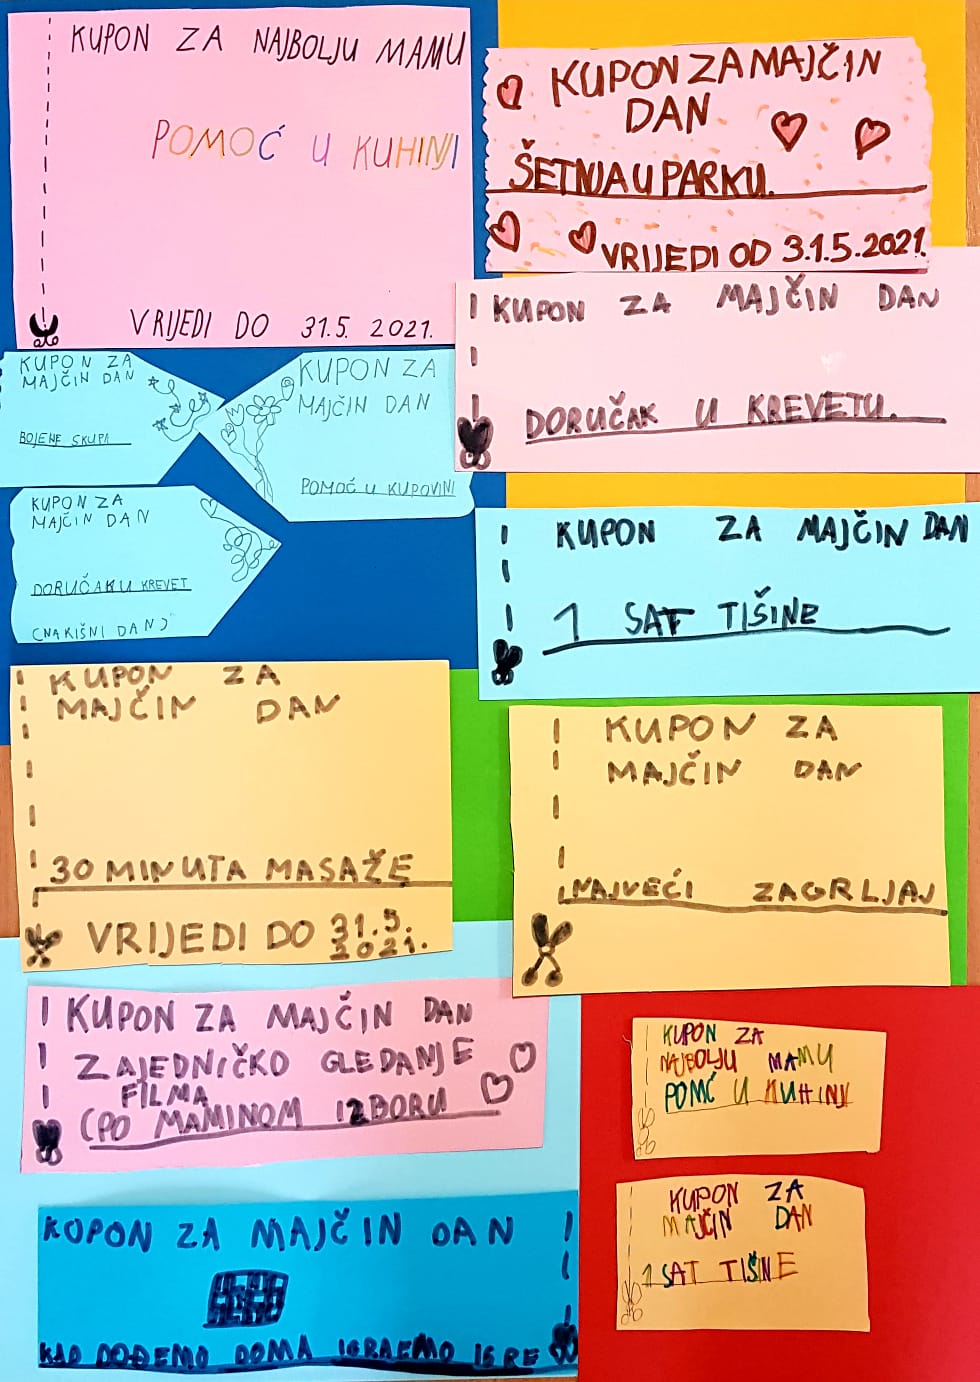 KUPON ZA NAJBOLJU MAMU
POMOĆ U KUHINJI
VRIJEDI DO 31.5. 2021.
KUPON ZA MAJČIN
DAN
ŠETNJA U PARKU.
VRIJEDI OD 3.1.5.2021.
KUPON ZA MAJČIN DAN
DORUČAK U KREVETU.
KUPON ZA
MAJČIN DAN
BOJENE SKUPA
KUPON ZA
MAJČIN DAN
POMOĆ U KUPOVINI
KUPON ZA
MAJČIN DAN
DORUČAK U KREVET
(NA KIŠNI DAN)
KUPON ZA MAJČIN DAN
1 SAT TIŠINE
KUPON ZA
MAJČIN DAN
30 MINUTA MASAŽE
VRIJEDI DO 31.5.
2021.
KUPON ZA
MAJČIN DAN
NAJVEĆI ZAGRLJAJ
KUPON ZA MAJČIN DAN
ZAJEDNIČKO GLEDANJE
FILMA
(PO MAMINOM IZBORU
KUPON ZA
NAJBOLJU MAMU
POMĆ U KUHINJI
KUPON ZA
MAJČIN DAN
1 SAT TIŠNE
KUPON ZA MAJČIN DAN
KAD DOĐEMO DOMA IGRAEMO IGRE